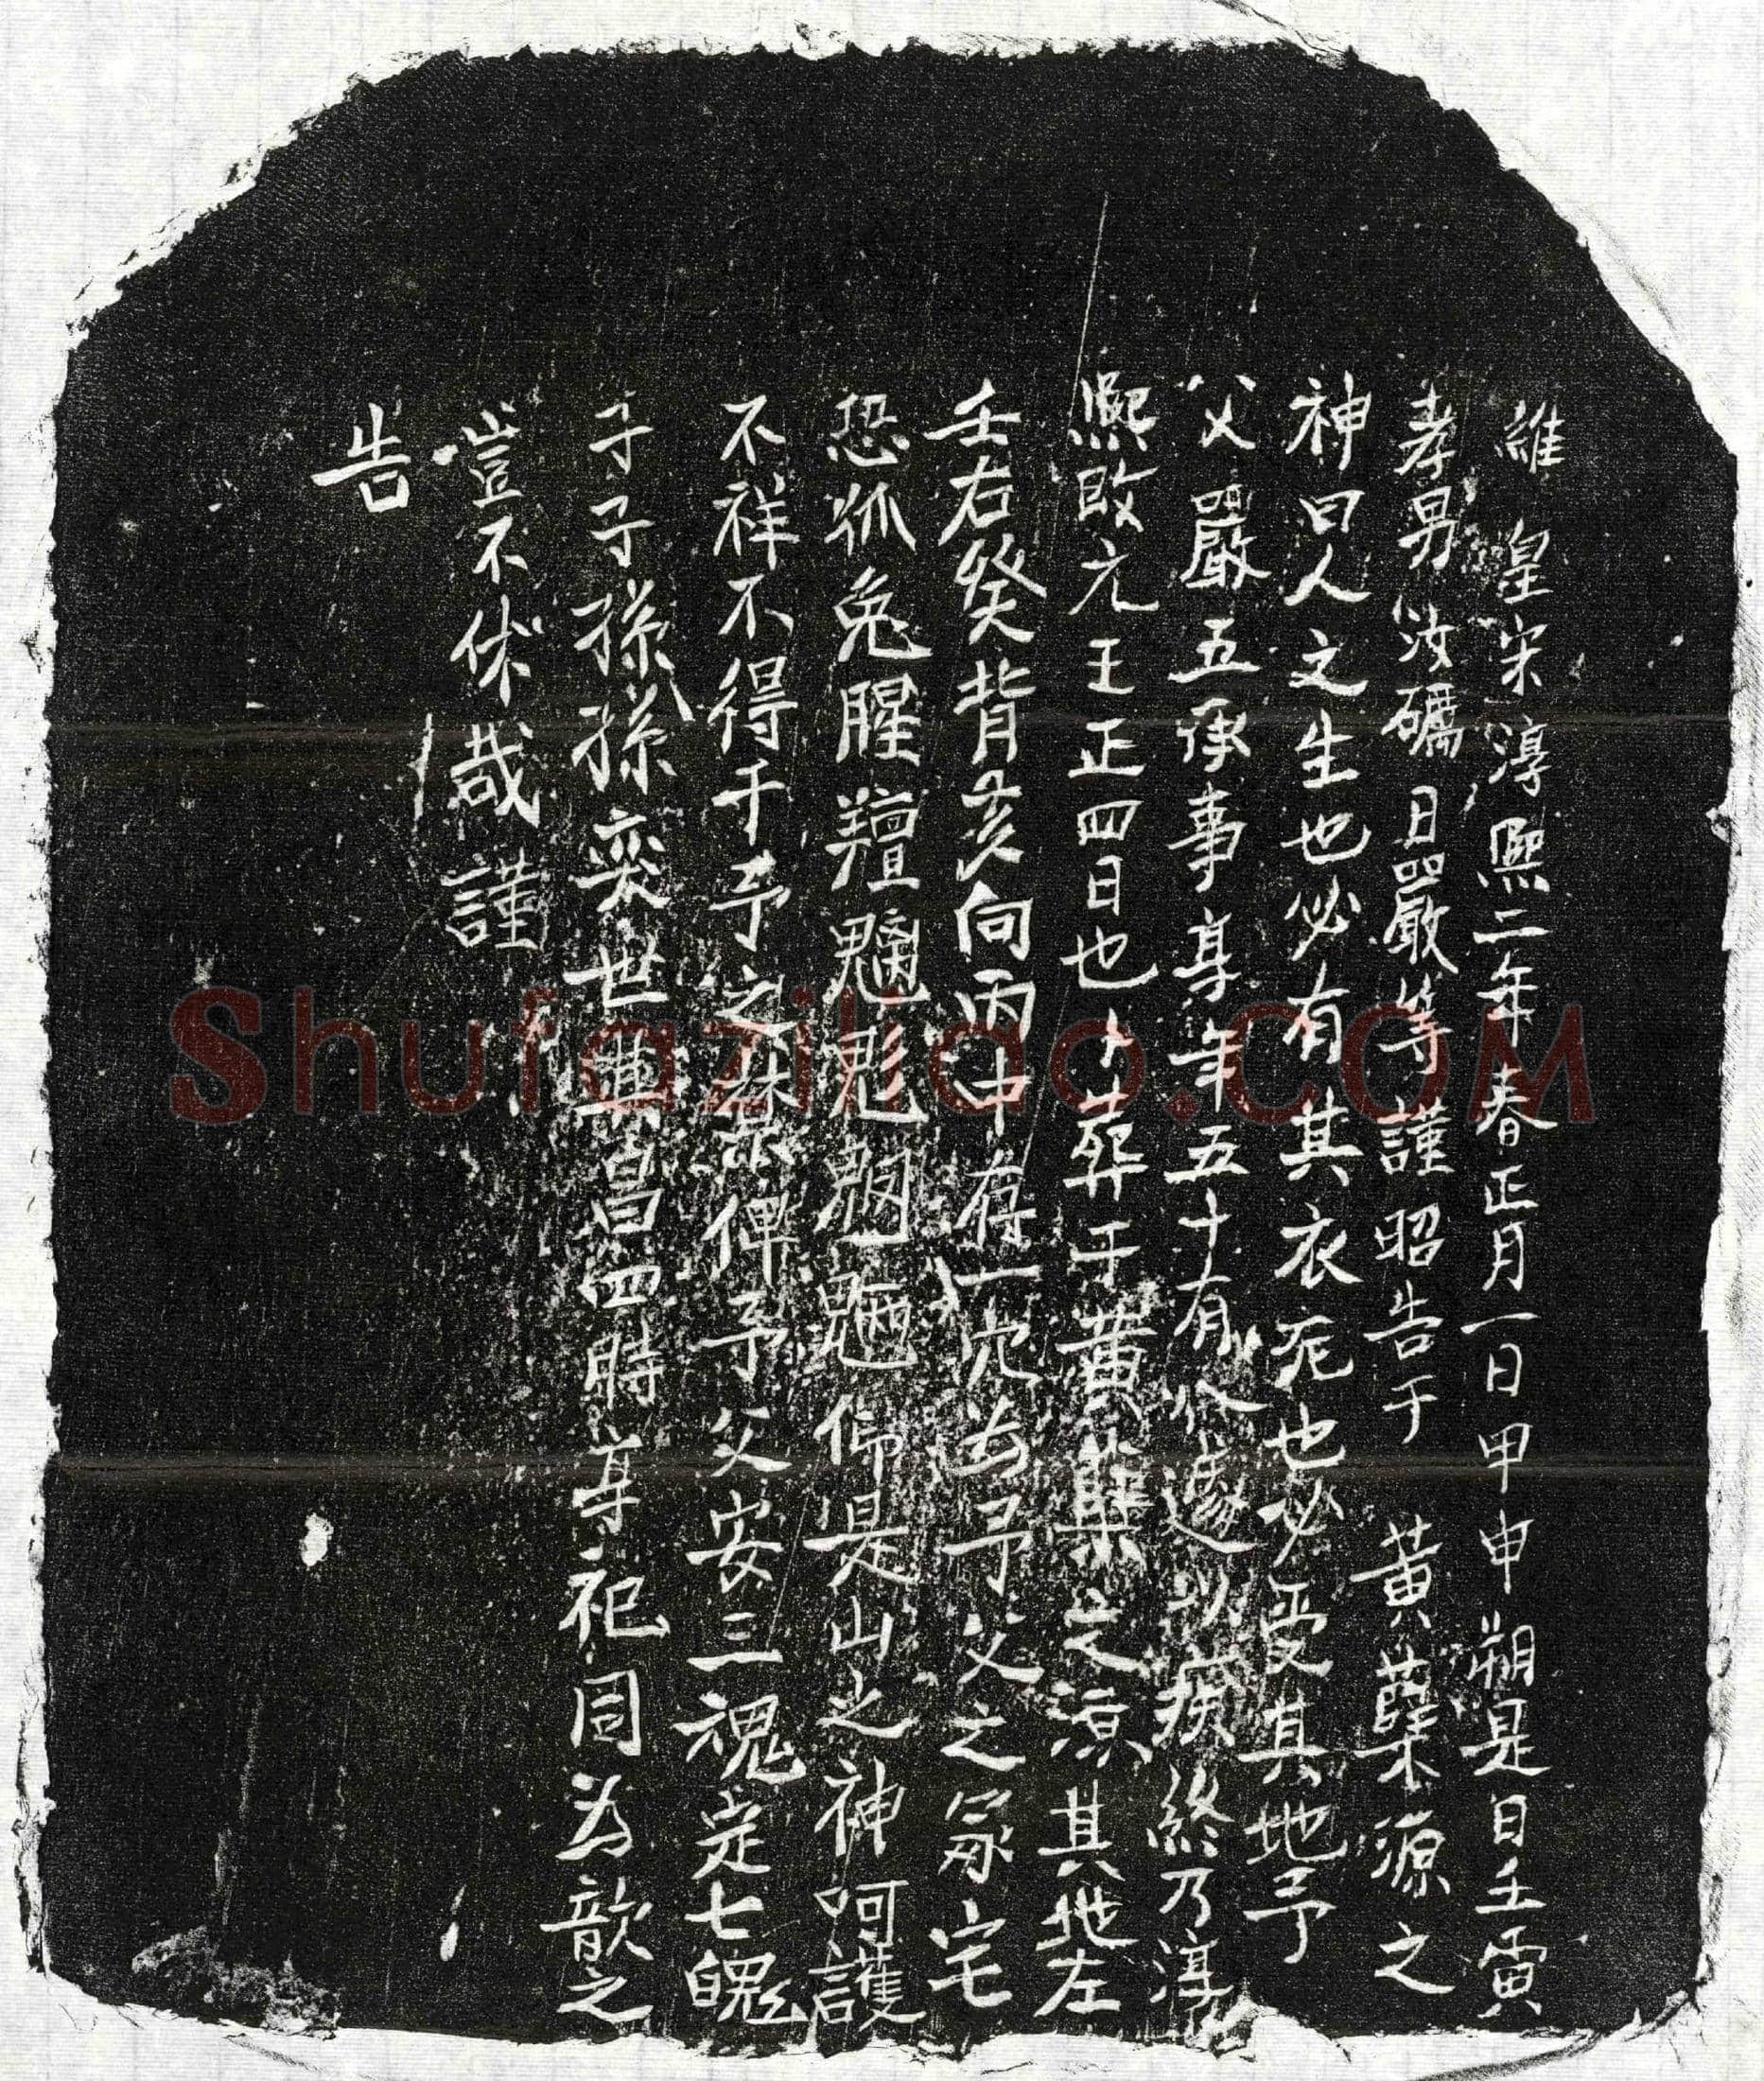 維 皇宋淳熙二年春正月一日甲申朔是日壬寅
孝男汝礪日嚴等謹昭告于 黃蘖源之
神曰人之生也必有其衣死也必受其地予
父嚴五承事享年五十有 遂以疾終乃淳
熙改元王正四日也卜葬于黃蘖之源其地左
壬右癸背亥向丙中存一穴為予父之冢宅
恐狐兔腥羶魑魅魍魎倚是山之神呵護
不祥不得干予之 禁俾予父安三魂定七魄
子子孫孫奕世興昌四時享祀同為歆之
豈不休哉謹
告
Shufaziliao.COM